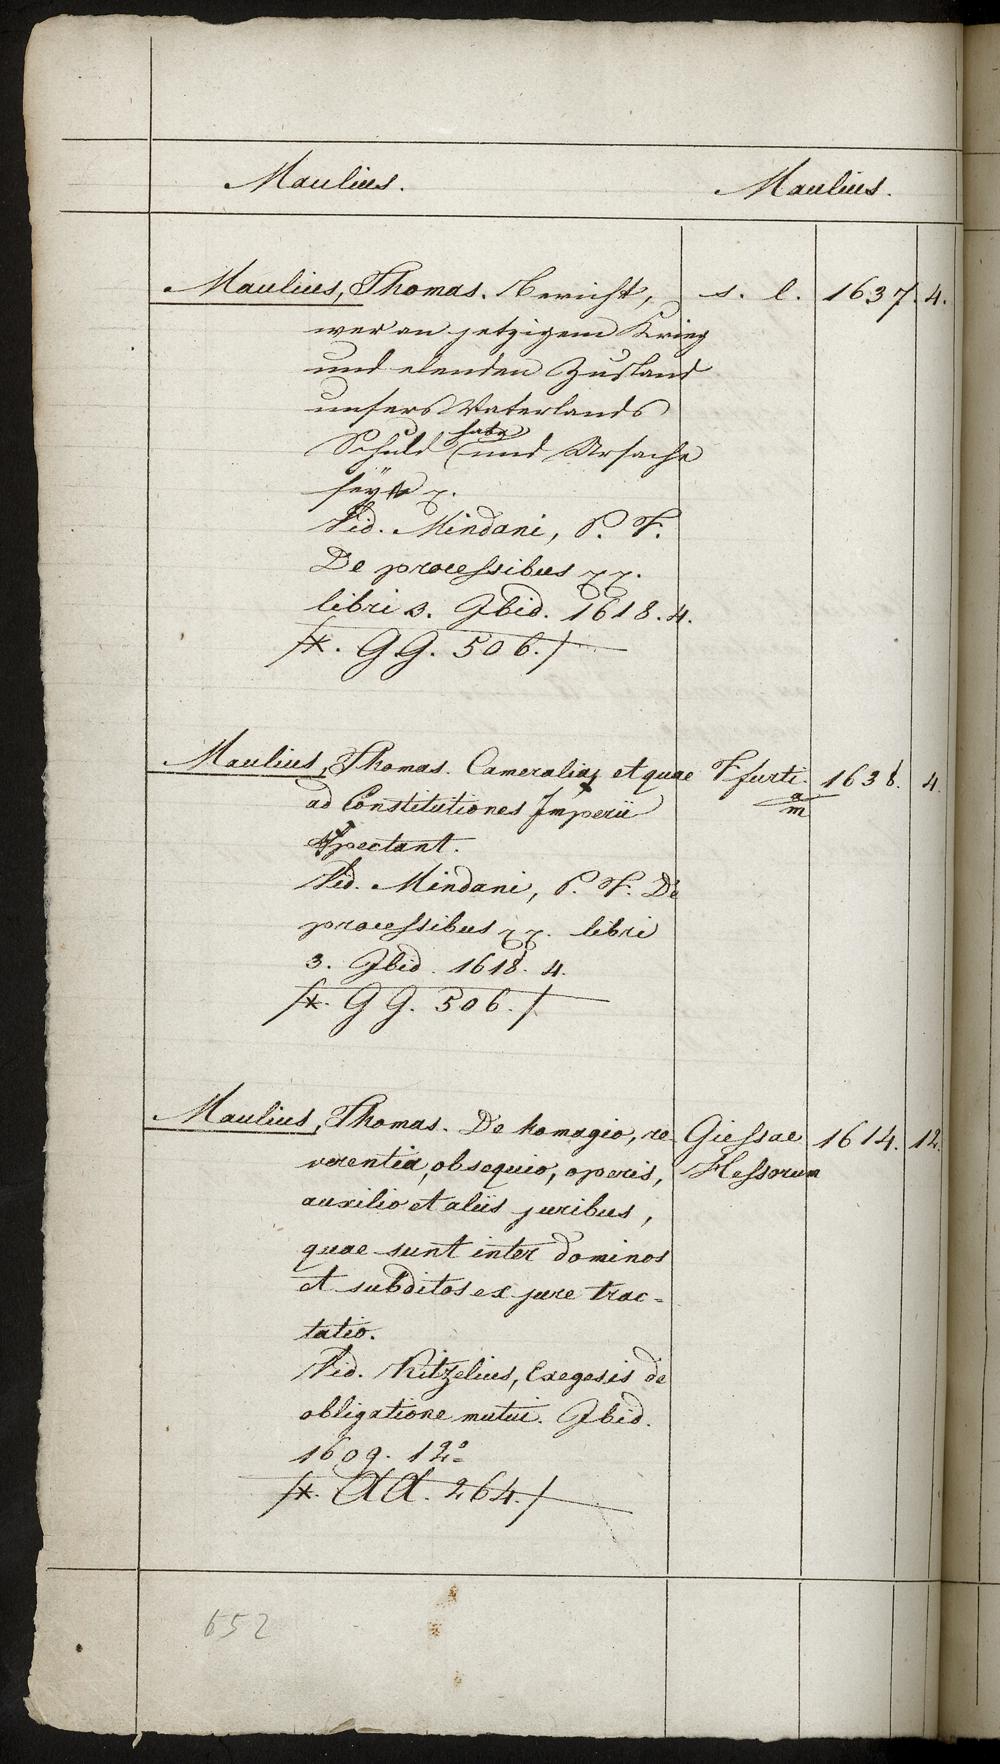 Maulius. Maulius.
Maulius, Thomas. Bericht, s. l. 1637. 4.
wer an jetzigem Krieg
und elenden Zustand
unsers Vaterlands
Schuld habe und Ursache
sey
Vid. Mindani, P. F.
De processibus pp.
libri 3. Ibid. 1618. 4.
/*. GG. 506./
Maulius, Thomas. Cameralia, et quae Ffurti. 1638. 4.
a/m
ad Constitutiones Imperii
spectant.
Vid. Mindani, P. F. De
processibus pp. libri
3. Ibid. 1618. 4.
/*. GG. 506./
Maulius, Thomas. De homagio, re- Giessae 1614. 12.
verentia, obsequio, operis, Hessorum
auxilio et aliis juribus,
quae sunt inter dominos
et subditos ex jure trac-
tatio.
Vid. Kitzelius, Exegesis de
obligatione mutui. Ibid.
1609. 12°
/*. AA. 264./
652